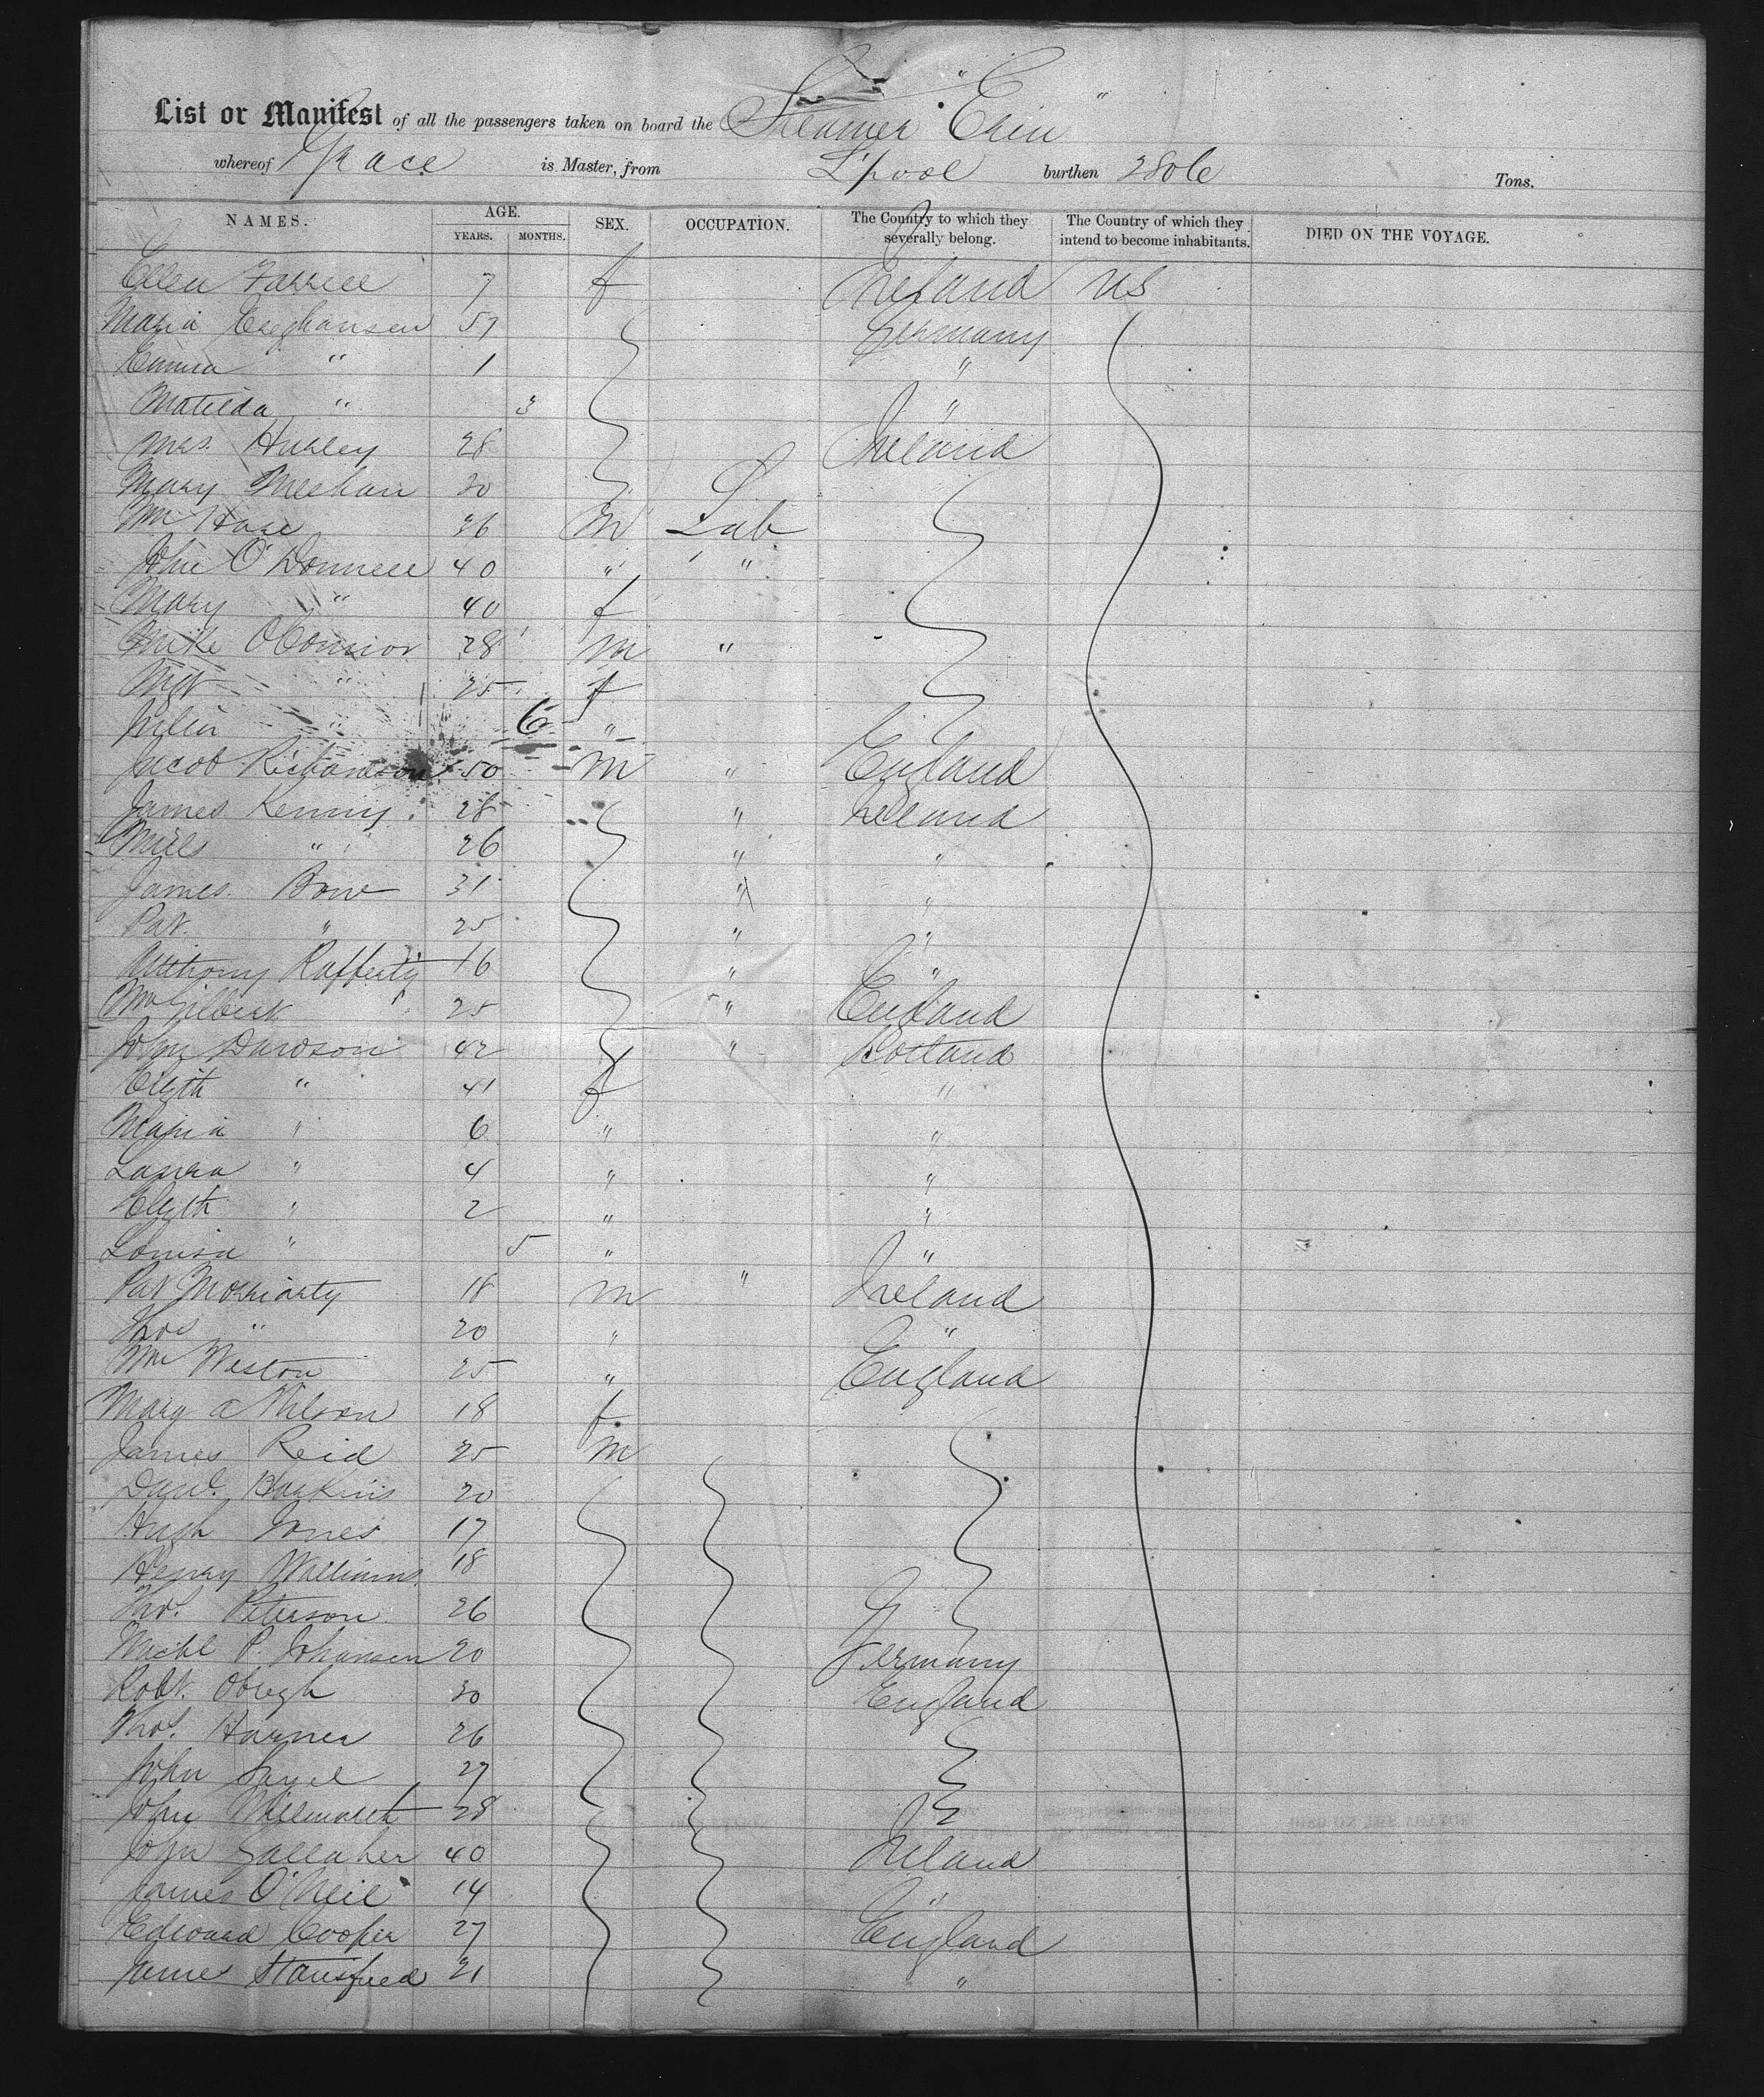 List or Manifest of all the passengers taken on board the Steamer "Erin"
whereof Grace is Master, from L'pool burthen 2806 Tons.
NAMES. AGE. SEX. OCCUPATION. The Country to which they severally belong. The Country of which they intend to become inhabitants. DIED ON THE VOYAGE.
YEARS. MONTHS.
Ellen Farrell 7 f Ireland US
Maria 57 Germany
Emma " 1 "
Matilda " 3 "
Mrs. Hurley 28 Ireland
Mary Meehan 20
Wm 36 m Lab
John O'Donnell 40 " "
Mary " 40 f
Mike OConnor 28 m "
Mgt " 25 f
Julia " 6 "
Jacob Richardson 50 m " England
James Kenny 28 " Ireland
" 26 " "
James Bow 31 " "
Pat. " 25 " "
Anthony Rafferty 16 " "
Wm Gilbert 25 " England
John Dawson 42 " Scotland
Elizth " 41 f "
Maria " 6 " "
Laura " 4 " "
Elizth " 2 " "
Louisa " 5 " "
Pat Moriarty 18 m " Ireland
Thos " 20 " "
Wm Weston 25 " England
Mary A Wilson 18 f
James Reid 25 m
Danl. Harkins 20
Hugh Jones 17
Henry Williams 18
Thos. Peterson 26
Michl P. Johansen 20 Germany
Robt. 30 England
Thos. Harner 26
John 27
John 28
John Gallaher 40 Ireland
James O'Neil 14 "
Edward Cooper 27 England
James Stansfied 21 "